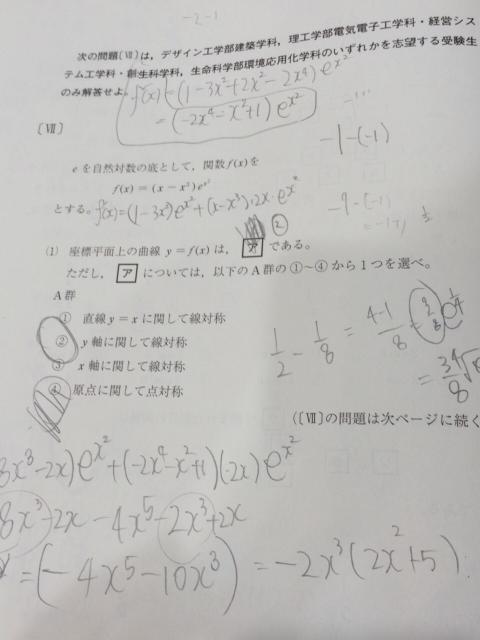 -2-1
次の問題〔Ⅶ〕は，デザイン工学部建築学科，理工学部電気電子工学科・経営シス
テム工学科・創生科学科，生命科学部環境応用化学科のいずれかを志望する受験生
のみ解答せよ。
f'(x) = (1-3x²+2x²-2x⁴) e^{x²}
= (-2x⁴-x²+1) e^{x²}
〔Ⅶ〕
-1-(-1)
e を自然対数の底として，関数 f(x) を
f(x) = (x - x³) e^{x²}
とする。 f'(x) = (1-3x²) e^{x²} + (x-x³)·2x·e^{x²}
-1-(-1)
= -1+1
1/2
②
(1) 座標平面上の曲線 y = f(x) は， ア である。
ただし， ア については，以下のA群の①～④から1つを選べ。
A群
① 直線 y = x に関して線対称
② y 軸に関して線対称
③ x 軸に関して線対称
④ 原点に関して点対称
1/2 - 1/8 = 4-1/8 = 3/8 e^{1/4}
= 3/8 ⁴√e
(〔Ⅶ〕の問題は次ページに続く
8x³-2x) e^{x²} + (-2x⁴-x²+1)(2x) e^{x²}
8x³-2x-4x⁵-2x³+2x
= (-4x⁵-10x³) = -2x³(2x²+5)